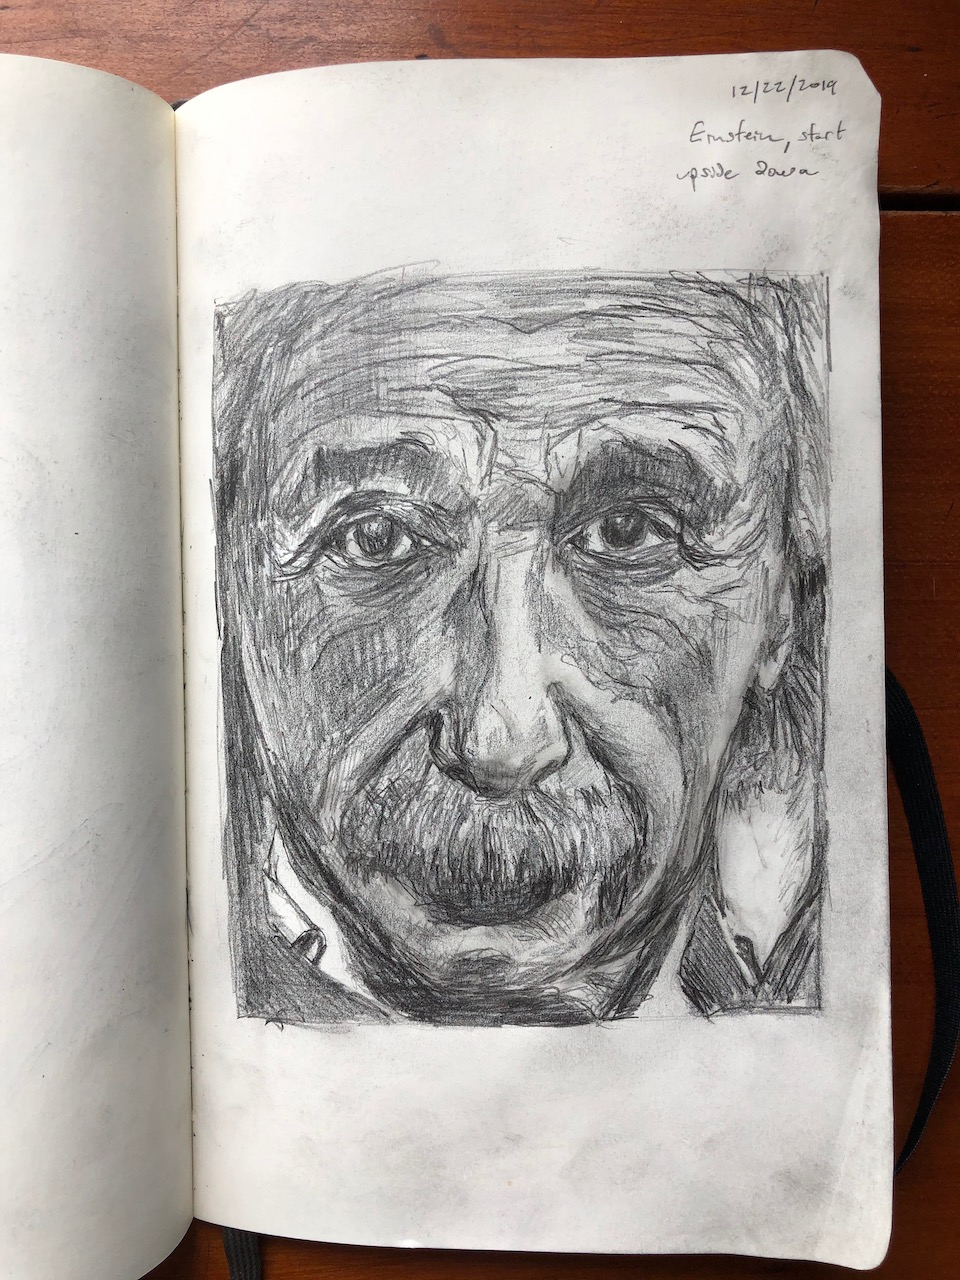 12/22/2019
Einstein, start
upside down